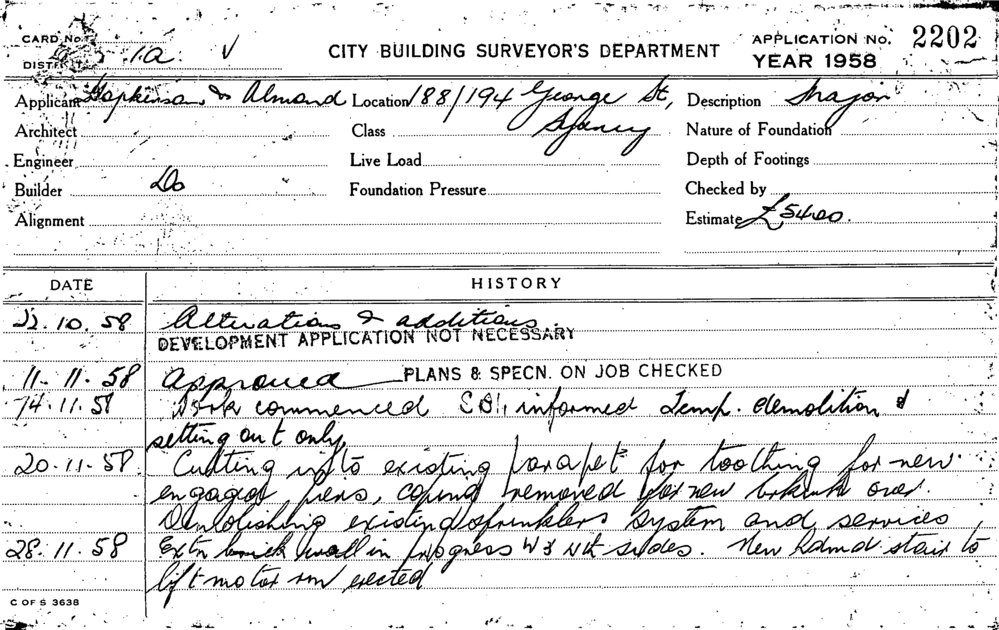 CARD No.
DISTRICT 1a. V
CITY BUILDING SURVEYOR'S DEPARTMENT
APPLICATION No. 2202
YEAR 1958
Applicant Hopkinson & Almond Location 188/194 George St, Description Major
Architect Class Sydney Nature of Foundation
Engineer Live Load Depth of Footings
Builder Do Foundation Pressure Checked by
Alignment Estimate £5400.
DATE HISTORY
22.10.58 Alterations & additions
DEVELOPMENT APPLICATION NOT NECESSARY
11.11.58 Approved PLANS & SPECN. ON JOB CHECKED
14.11.58 Work commenced informed Temp. demolition &
setting out only.
20.11.58. Cutting into existing parapet for toothing for new
engaged piers, coping removed for new brkwk over.
Demolishing existing sprinklers system and services
28.11.58 Extn brick wall in progress W & Nth sides. New hdwd stair to
lift motor rm erected
C OF S 3638